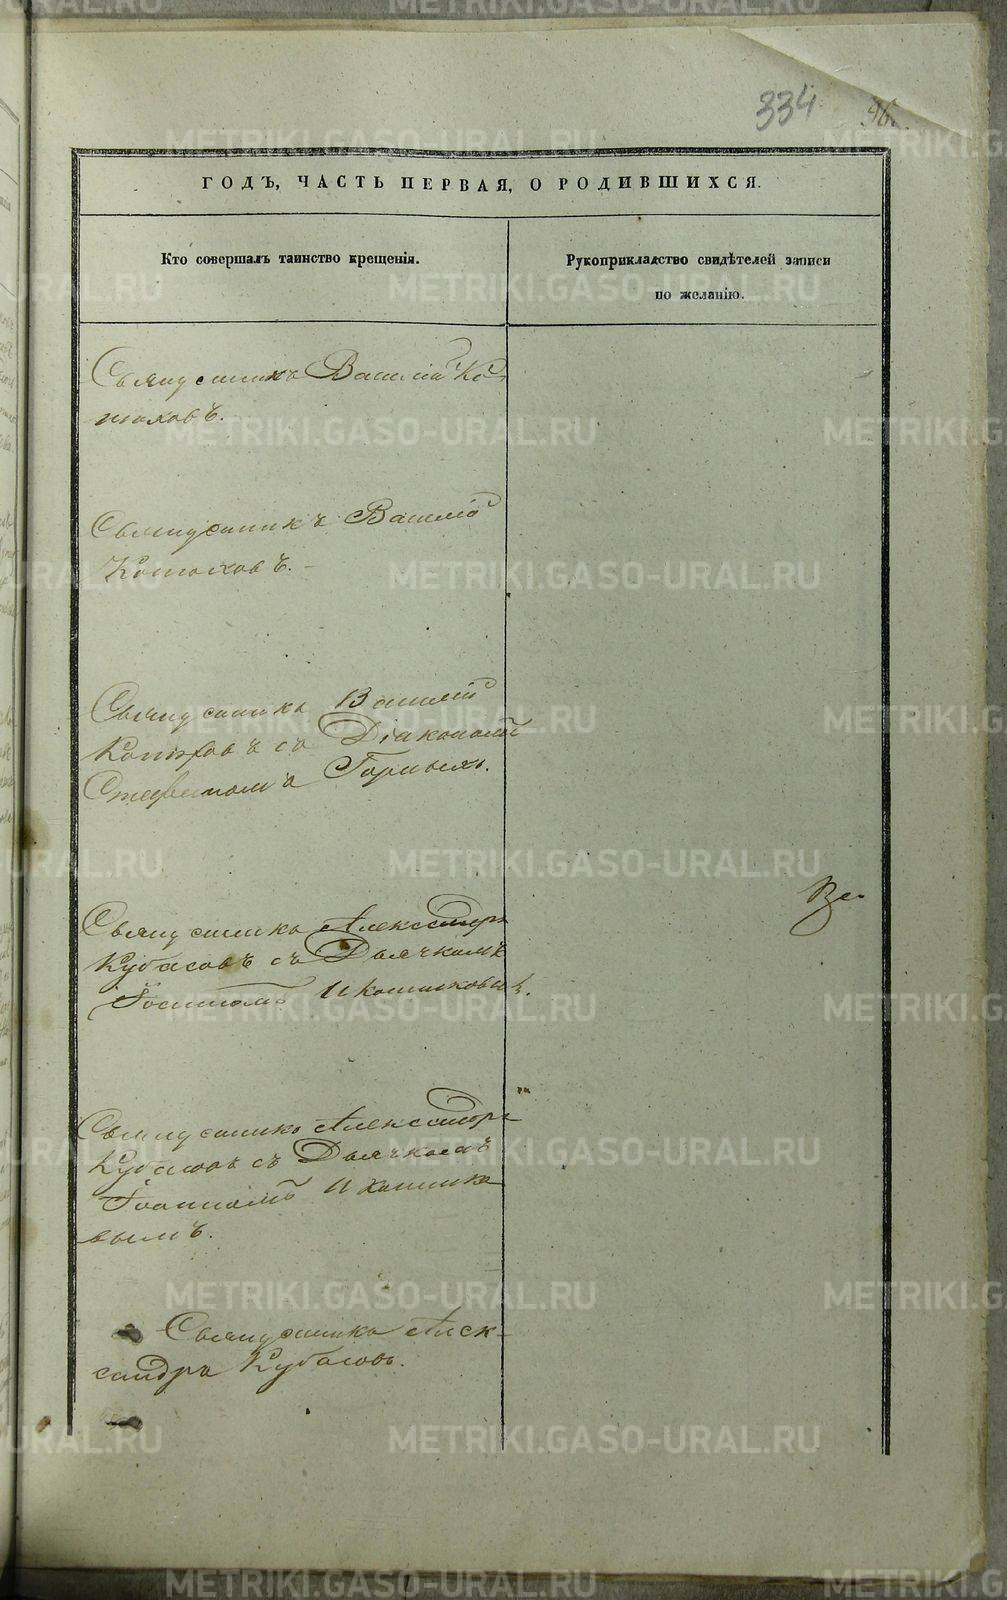 334
96.
ГОДЪ, ЧАСТЬ ПЕРВАЯ, О РОДИВШИХСЯ.
Кто совершалъ таинство крещенія.
Рукоприкладство свидѣтелей записи
по желанію.
Священникъ Василій Ко-
маховъ.
Священникъ Василій
Священникъ Василій
съ Діакономъ
Стефаномъ
Священникъ Александръ
Кубасовъ съ Дьячкомъ
Іоанномъ Иконниковымъ.
Священникъ Александръ
Кубасовъ съ Дьячкомъ
Іоанномъ Иконнико
вымъ.
Священникъ Алек-
сандръ Кубасовъ.
METRIKI.GASO-URAL.RU